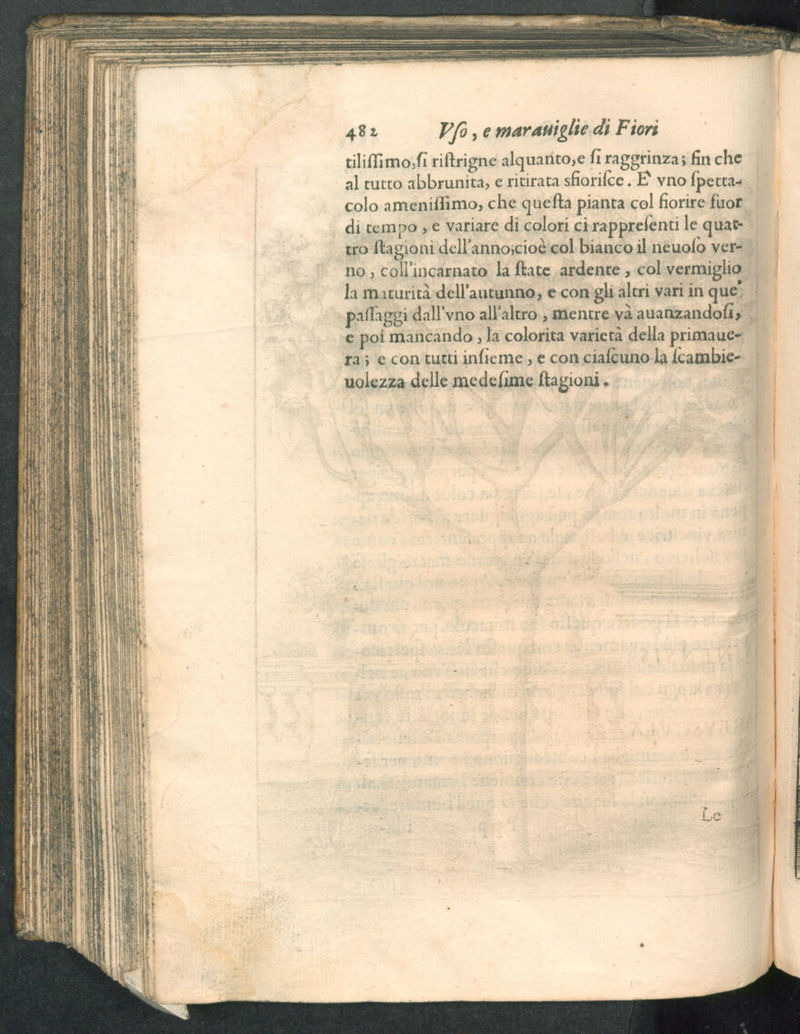 482 Vſo, e marauiglie di Fiori
tiliſſimo, ſi riſtrigne alquanto, e ſi raggrinza; fin che
al tutto abbrunita, e ritirata sfiorifce. E' vno ſpetta-
colo ameniſſimo, che queſta pianta col fiorire fuor
di tempo, e variare di colori ci rappreſenti le quat-
tro ſtagioni dell'anno, cioè col bianco il neuoſo ver-
no, coll'incarnato la ſtate ardente, col vermiglio
la maturità dell'autunno, e con gli altri vari in que'
paſſaggi dall'vno all'altro, mentre và auanzandoſi,
e poi mancando, la colorita varietà della primaue-
ra; e con tutti inſieme, e con ciaſcuno la ſcambie-
uolezza delle medeſime ſtagioni.
Le